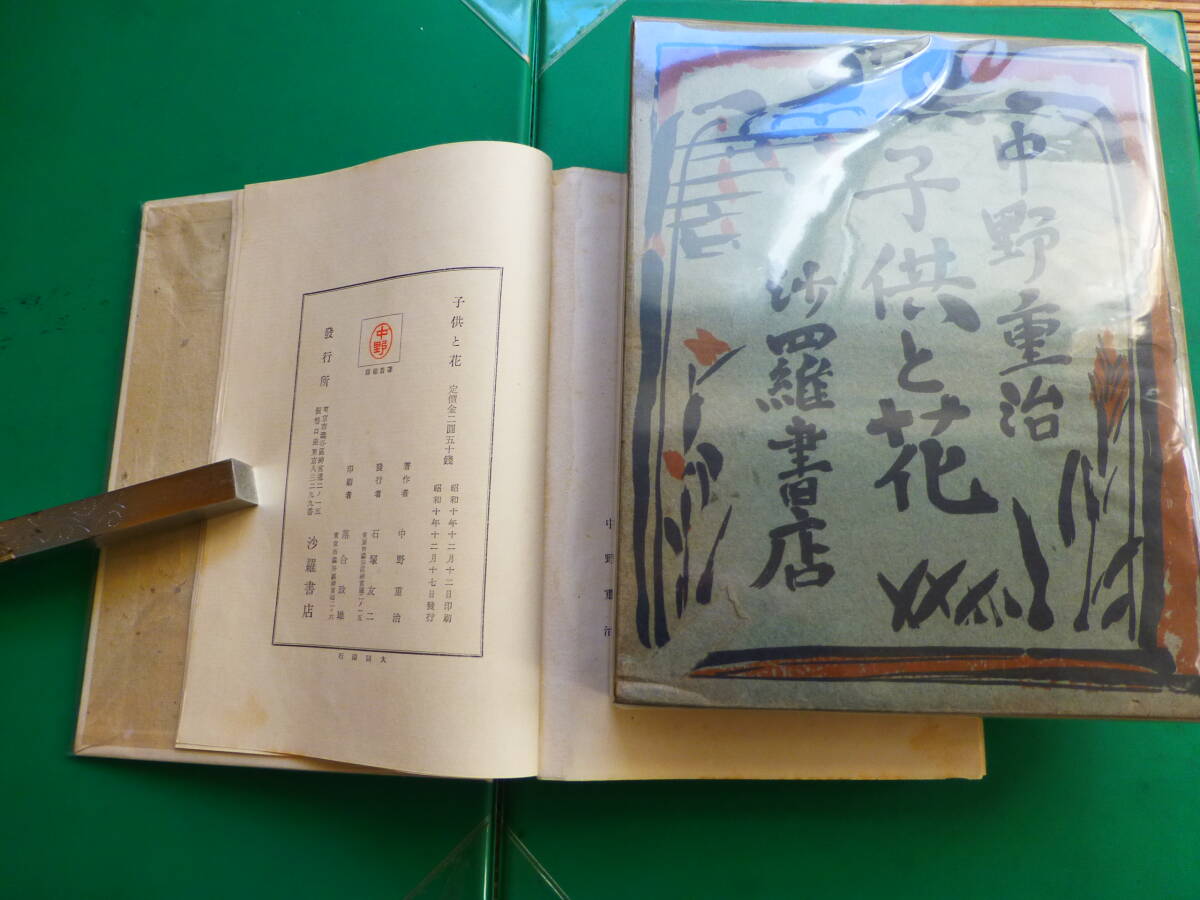 中野重治
子供と花
沙羅書店
中野重治
子供と花
定價金二圓五十錢
昭和十年十二月十二日印刷
昭和十年十二月十七日發行
著作者
中野重治
發行者
石塚友二
印刷者
落合
中野
發行所
沙羅書店